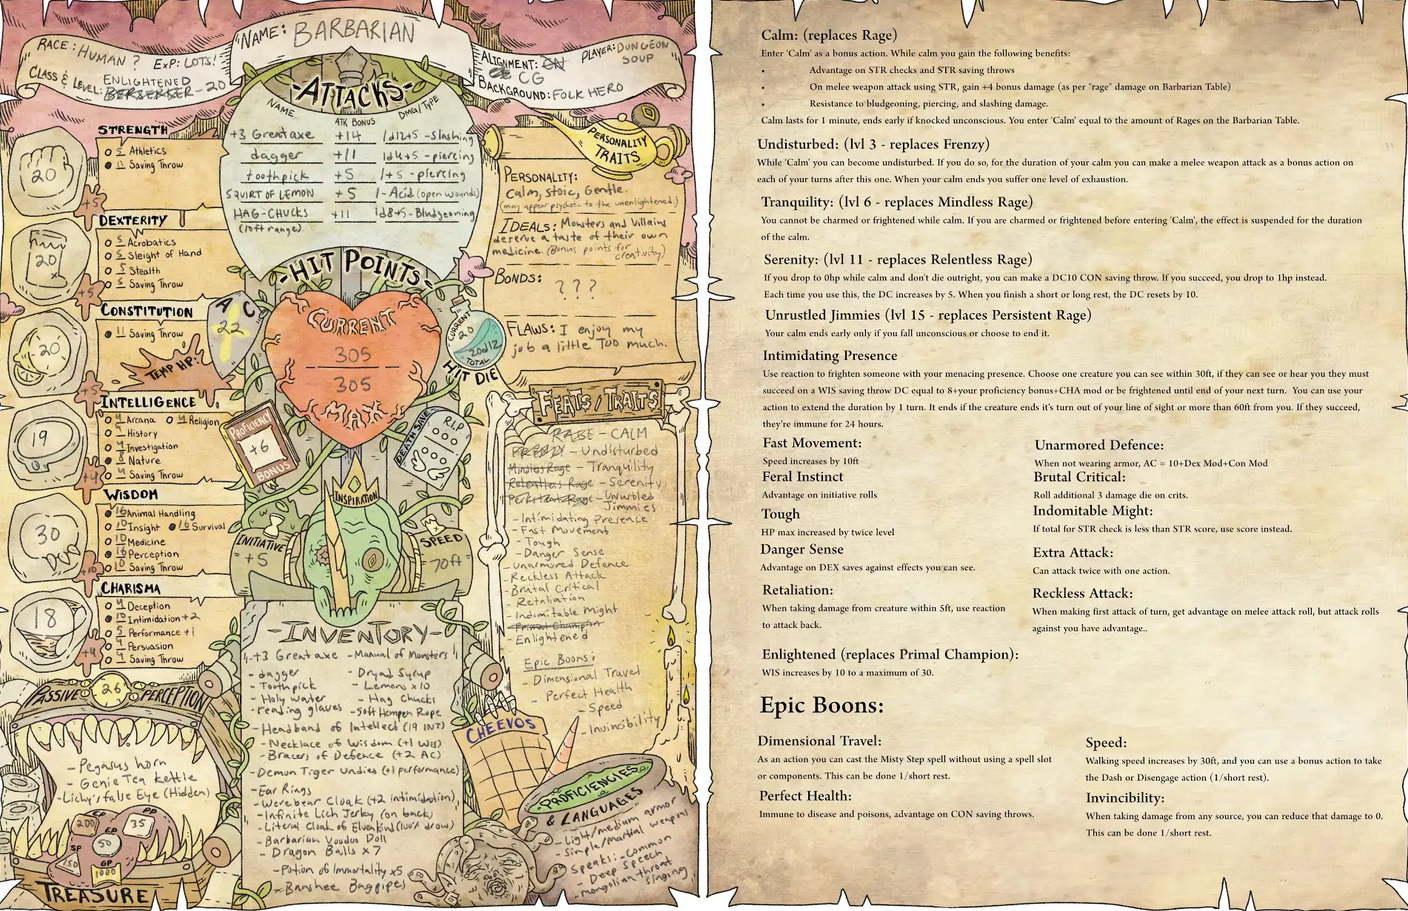 NAME: BARBARIAN
RACE: HUMAN? EXP: LOTS!
CLASS & LEVEL: ENLIGHTENED
BERSERKER - 20
ALIGNMENT: CN
CG
PLAYER: DUNGEON
SOUP
BACKGROUND: FOLK HERO
-ATTACKS-
NAME ATK BONUS DMG/TYPE
+3 Greataxe +14 1d12+5 -Slashing
dagger +11 1d4+5 -piercing
toothpick +5 1+5 -piercing
SQUIRT OF LEMON +5 1-Acid (open wounds)
HAG-CHUCKS +11 1d8+5-Bludgeoning
(10ft range)
STRENGTH
20
+5
5 Athletics
11 Saving Throw
DEXTERITY
20
+5
5 Acrobatics
5 Sleight of Hand
5 Stealth
5 Saving Throw
CONSTITUTION
20
+5
11 Saving Throw
TEMP HP:
INTELLIGENCE
19
+4
4 Arcana 4 Religion
4 History
4 Investigation
Nature
4 Saving Throw
WISDOM
30
+10
16 Animal Handling
10 Insight 16 Survival
10 Medicine
16 Perception
10 Saving Throw
CHARISMA
18
+4
4 Deception
10 Intimidation +2
5 Performance +1
4 Persuasion
4 Saving Throw
AC
22
-HIT POINTS-
CURRENT
305
305
MAX
CURRENT
20
20d12
TOTAL
HIT DIE
PROFICIENCY
+6
BONUS
DEATH SAVE
RIP
INSPIRATION
INITIATIVE
+5
SPEED
70ft
PERSONALITY
TRAITS
PERSONALITY:
Calm, Stoic, Gentle.
(may appear psychotic to the unenlightened.)
IDEALS: Monsters and Villains
deserve a taste of their own
medicine. (Bonus points for
creativity)
BONDS:
???
FLAWS: I enjoy my
job a little Too much.
FEATS/TRAITS
RAGE - CALM
FRENZY - Undisturbed
Mindless Rage - Tranquility
Relentless Rage - Serenity
Persistent Rage - Unrustled
Jimmies
-Intimidating Presence
-Fast Movement
-Tough
-Danger Sense
-Unarmored Defence
-Reckless Attack
-Brutal Critical
-Retaliation
-Indomitable Might
-Primal Champion
-Enlightened
Epic Boons:
-Dimensional Travel
-Perfect Health
-Speed
-Invincibility
-INVENTORY-
-+3 Greataxe -Manual of Monsters
-dagger -Dryad Syrup
-Toothpick -Lemons x10
-Holy water -Hag Chucks
-reading glaves -50ft Hempen Rope
-Headband of Intellect (19 INT)
-Necklace of Wisdom (+1 WIS)
-Bracers of Defence (+2 AC)
-Demon Tiger Undies (+1 performance)
-Ear Rings
-Werebear Cloak (+2 intimidation)
-Infinite Lich Jerky (on back)
-Literal Cloak of Elvenkind (100% drow)
-Barbarian Voodoo Doll
-Dragon Balls x7
-Potion of Immortality x5
-Banshee Bagpipes
PASSIVE 26 PERCEPTION
-Pegasus horn
-Genie Tea Kettle
-Lichy's false Eye (Hidden)
PP
200
EP
35
50
SP
150
GP
1000
TREASURE
CHEEVOS
PROFICIENCIES
& LANGUAGES
-Light/medium armor
-Simple/martial weapons
Speaks: -Common
-Deep Speech
-mongolian throat
singing
Calm: (replaces Rage)
Enter 'Calm' as a bonus action. While calm you gain the following benefits:
• Advantage on STR checks and STR saving throws
• On melee weapon attack using STR, gain +4 bonus damage (as per "rage" damage on Barbarian Table)
• Resistance to bludgeoning, piercing, and slashing damage.
Calm lasts for 1 minute, ends early if knocked unconscious. You enter 'Calm' equal to the amount of Rages on the Barbarian Table.
Undisturbed: (lvl 3 - replaces Frenzy)
While 'Calm' you can become undisturbed. If you do so, for the duration of your calm you can make a melee weapon attack as a bonus action on
each of your turns after this one. When your calm ends you suffer one level of exhaustion.
Tranquility: (lvl 6 - replaces Mindless Rage)
You cannot be charmed or frightened while calm. If you are charmed or frightened before entering 'Calm', the effect is suspended for the duration
of the calm.
Serenity: (lvl 11 - replaces Relentless Rage)
If you drop to 0hp while calm and don't die outright, you can make a DC10 CON saving throw. If you succeed, you drop to 1hp instead.
Each time you use this, the DC increases by 5. When you finish a short or long rest, the DC resets by 10.
Unrustled Jimmies (lvl 15 - replaces Persistent Rage)
Your calm ends early only if you fall unconscious or choose to end it.
Intimidating Presence
Use reaction to frighten someone with your menacing presence. Choose one creature you can see within 30ft, if they can see or hear you they must
succeed on a WIS saving throw DC equal to 8+your proficiency bonus+CHA mod or be frightened until end of your next turn. You can use your
action to extend the duration by 1 turn. It ends if the creature ends it's turn out of your line of sight or more than 60ft from you. If they succeed,
they're immune for 24 hours.
Fast Movement:
Speed increases by 10ft
Feral Instinct
Advantage on initiative rolls
Tough
HP max increased by twice level
Danger Sense
Advantage on DEX saves against effects you can see.
Retaliation:
When taking damage from creature within 5ft, use reaction
to attack back.
Unarmored Defence:
When not wearing armor, AC = 10+Dex Mod+Con Mod
Brutal Critical:
Roll additional 3 damage die on crits.
Indomitable Might:
If total for STR check is less than STR score, use score instead.
Extra Attack:
Can attack twice with one action.
Reckless Attack:
When making first attack of turn, get advantage on melee attack roll, but attack rolls
against you have advantage..
Enlightened (replaces Primal Champion):
WIS increases by 10 to a maximum of 30.
Epic Boons:
Dimensional Travel:
As an action you can cast the Misty Step spell without using a spell slot
or components. This can be done 1/short rest.
Perfect Health:
Immune to disease and poisons, advantage on CON saving throws.
Speed:
Walking speed increases by 30ft, and you can use a bonus action to take
the Dash or Disengage action (1/short rest).
Invincibility:
When taking damage from any source, you can reduce that damage to 0.
This can be done 1/short rest.